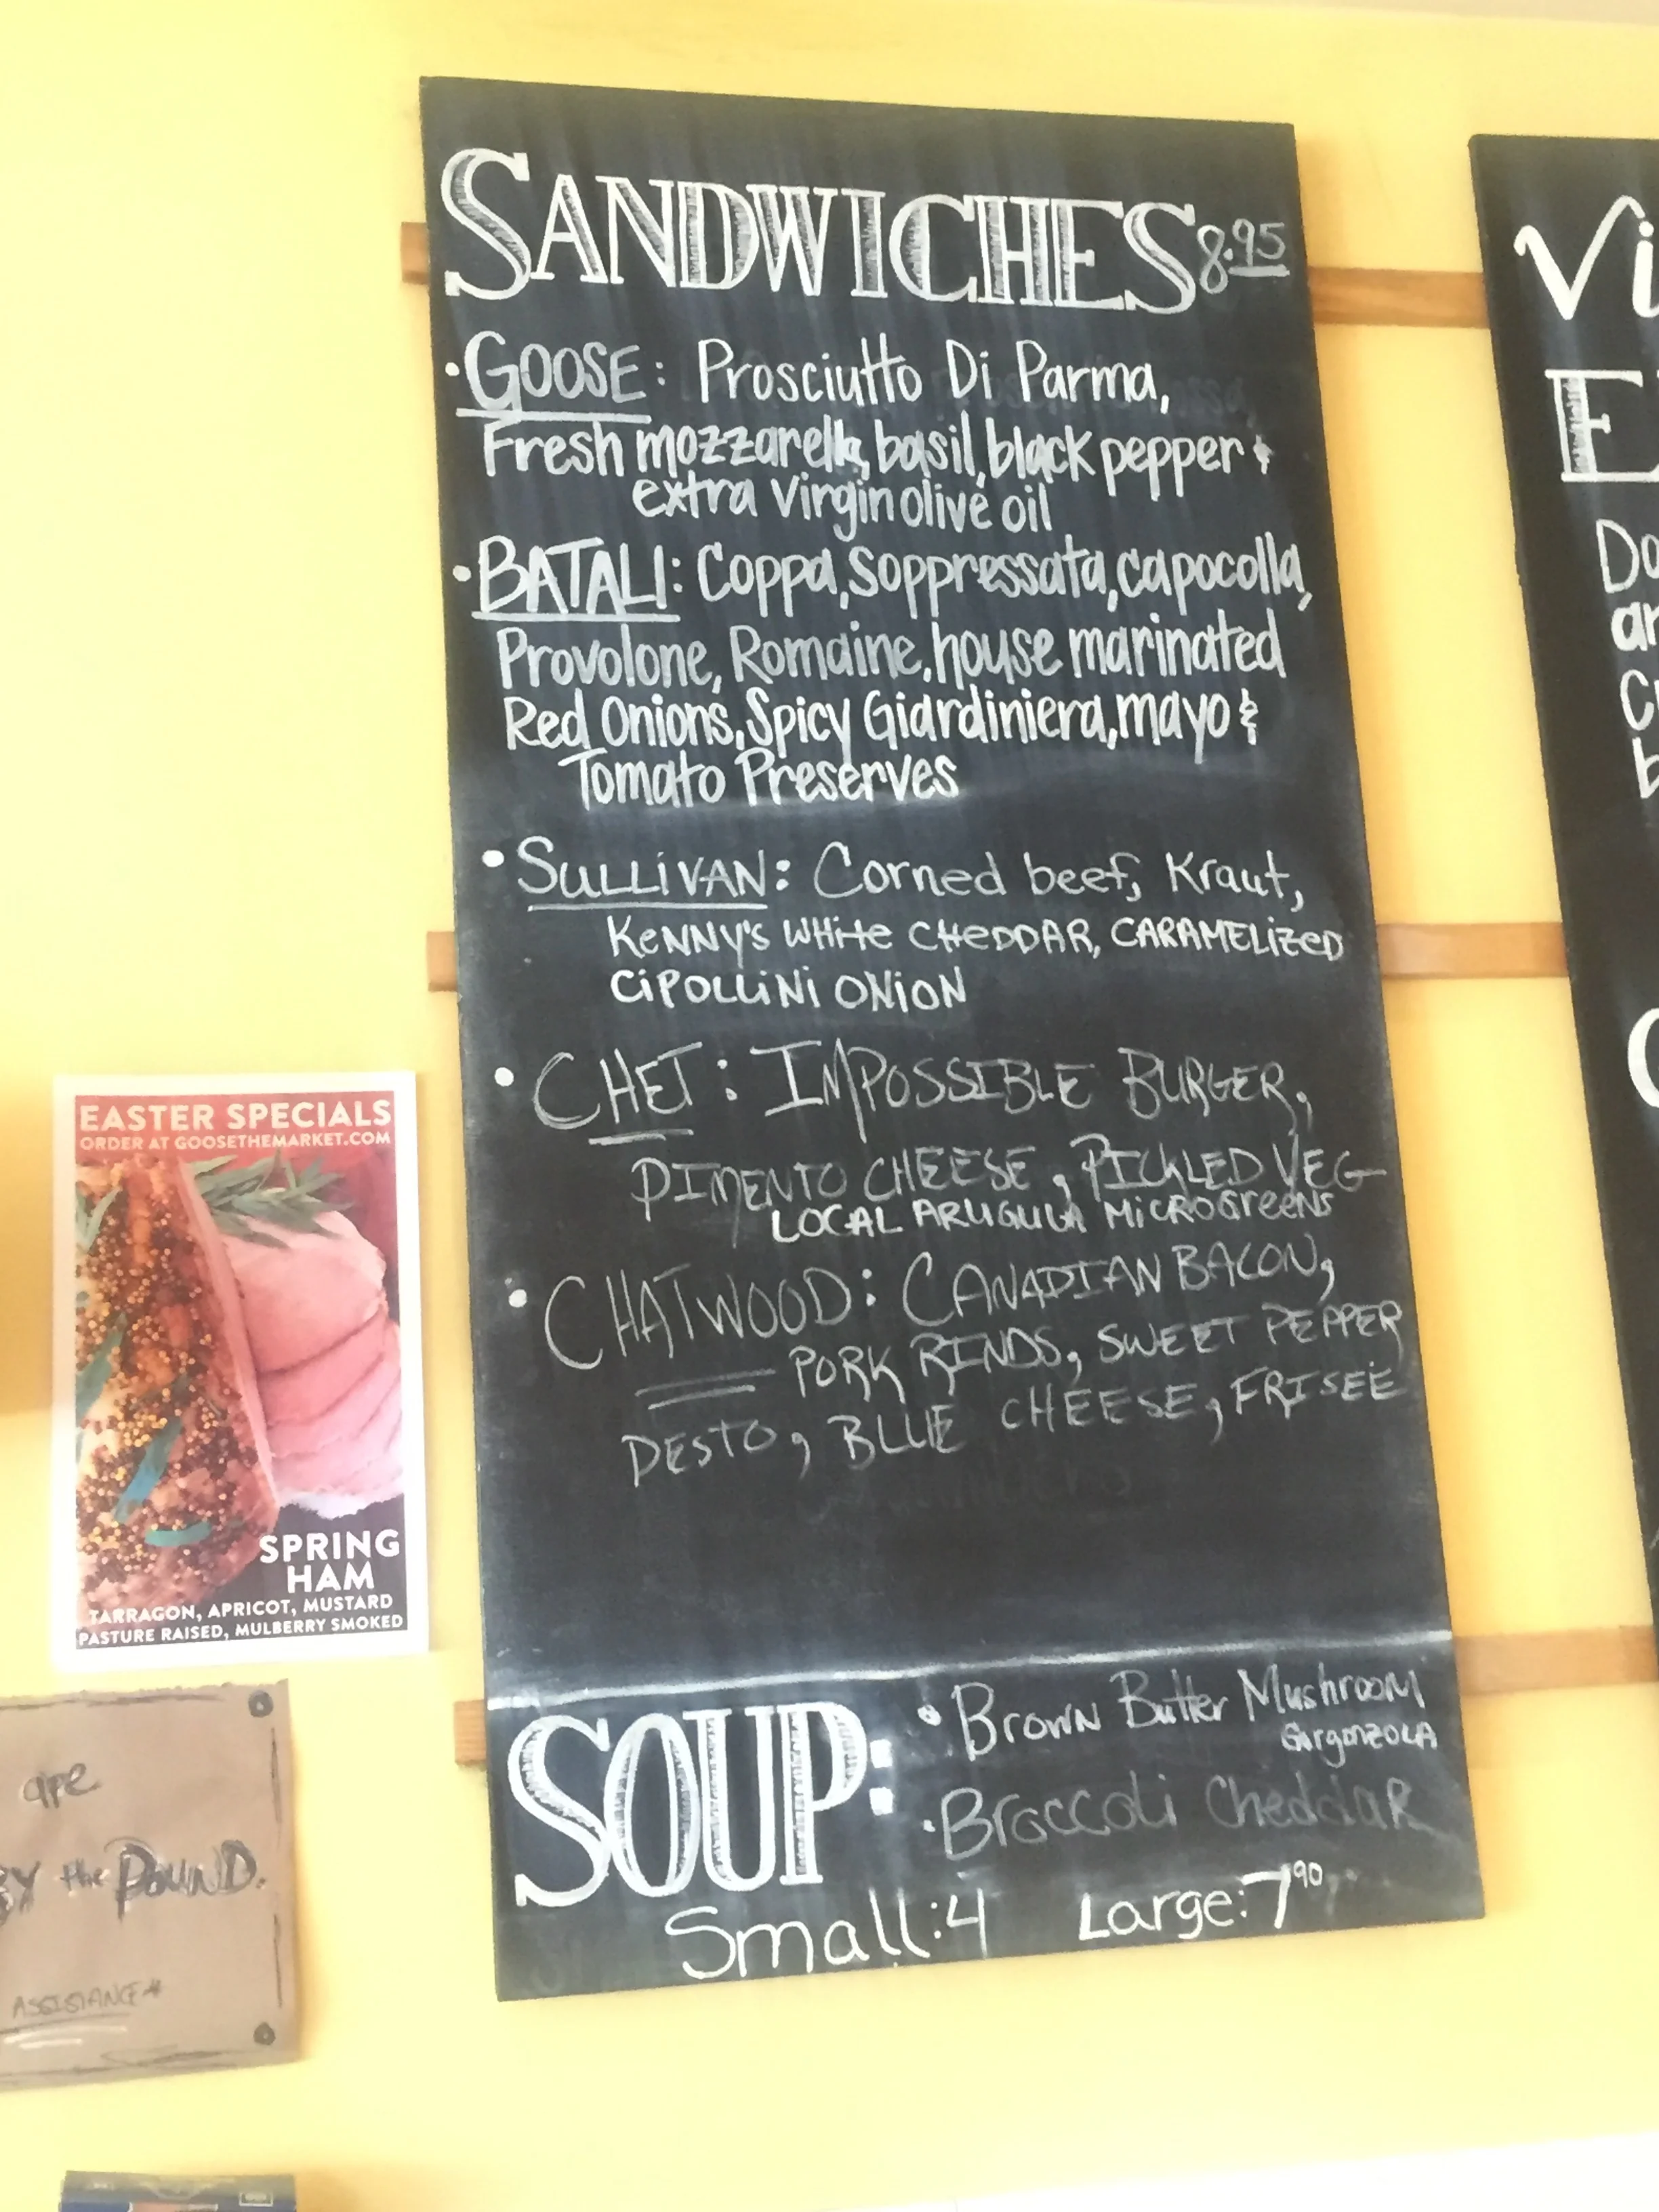 SANDWICHES 8.95
• GOOSE: Prosciutto Di Parma,
Fresh mozzarella, basil, black pepper &
extra Virgin olive oil
• BATALI: Coppa, Soppressata, capocolla,
Provolone, Romaine, house marinated
Red Onions, Spicy Giardiniera, mayo &
Tomato Preserves
• SULLiVAN: Corned beef, Kraut,
KeNNY's WHite CHeDDAR, CARAMELizeD
CiPOLLiNi ONiON
• CHET: IMPOSSIBLE BURGER,
PIMENTO CHEESE, PICKLED VEG
LOCAL ARUGULA MiCROGreeNS
• CHATWOOD: CANADIAN BACON,
PORK RINDS, SWEET PEPPER
PESTO, BLUE CHEESE, FRISEE
SOUP:
• Brown Butter Mushroom
GorgonzOLA
• Broccoli CheddaR
Small: 4 Large: 7.90
EASTER SPECIALS
ORDER AT GOOSETHEMARKET.COM
SPRING
HAM
TARRAGON, APRICOT, MUSTARD
PASTURE RAISED, MULBERRY SMOKED
are
BY the POUND.
ASSISTANCE*
Vi
E
Do
ar
C
b